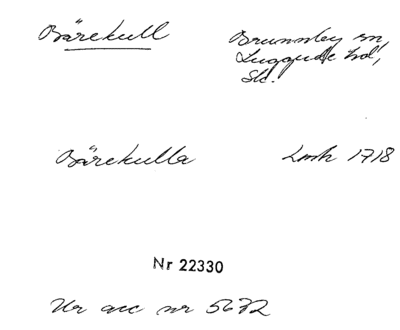 Bärekull
Brunnby sn,
Luggude hd,
Sk.
Bärekulla
Lmh 1718
Nr 22330
Ur acc nr 5672